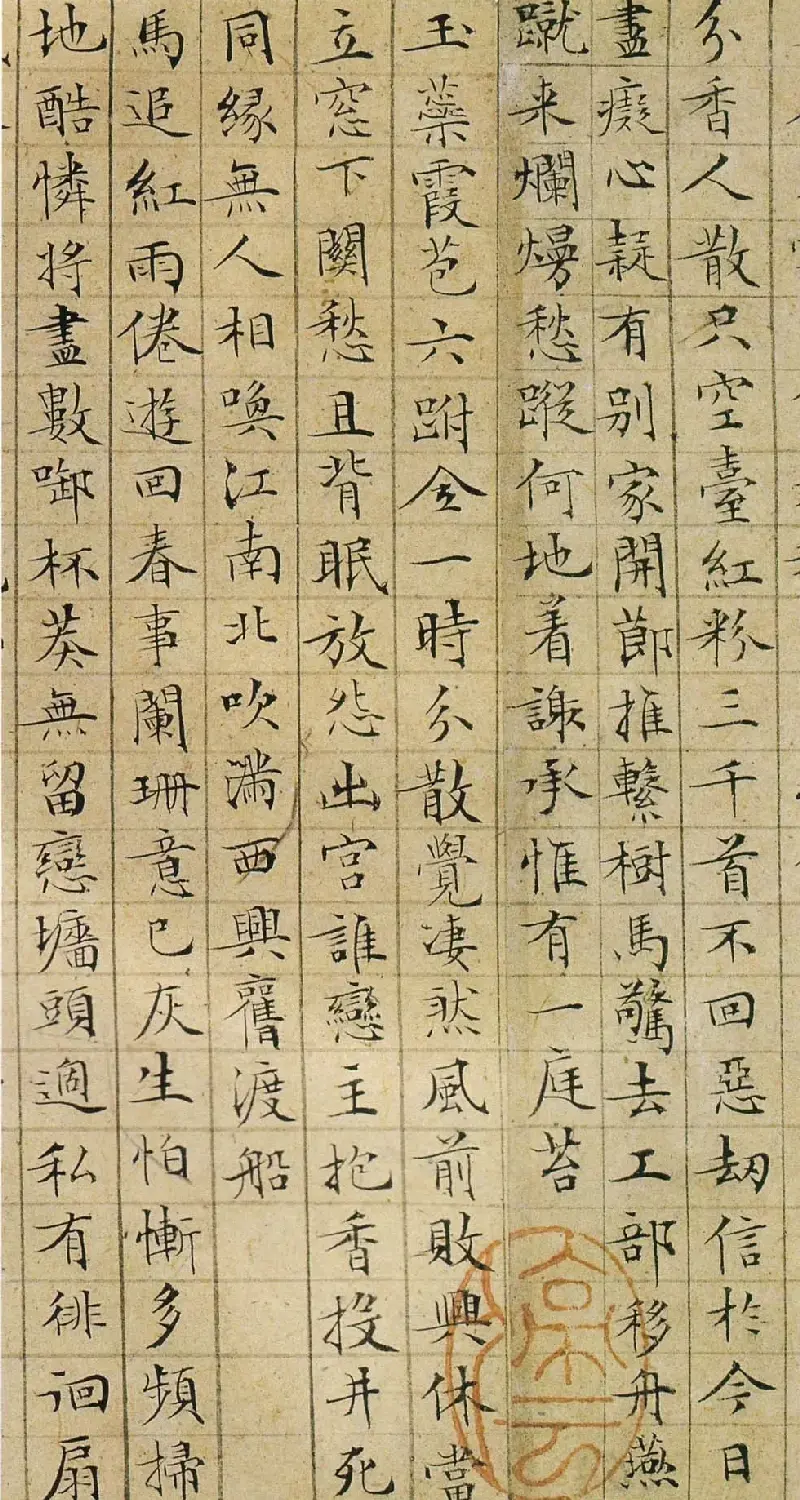 分香人散只空臺紅粉三千首不回惡劫信於今日
盡癡心疑有別家開節推繫樹馬驚去工部移舟燕
蹴来爛熳愁蹤何地着謝承惟有一庭苔
玉蘂霞苞六跗全一時分散覺凄然風前敗興休當
立窓下關愁且背眠放怨出宮誰戀主抱香投井死
同緣無人相喚江南北吹滿西興舊渡船
馬追紅雨倦遊回春事闌珊意已灰生怕慚多頻掃
地酷憐將盡數啣杯莫無留戀墻頭過私有徘徊扇